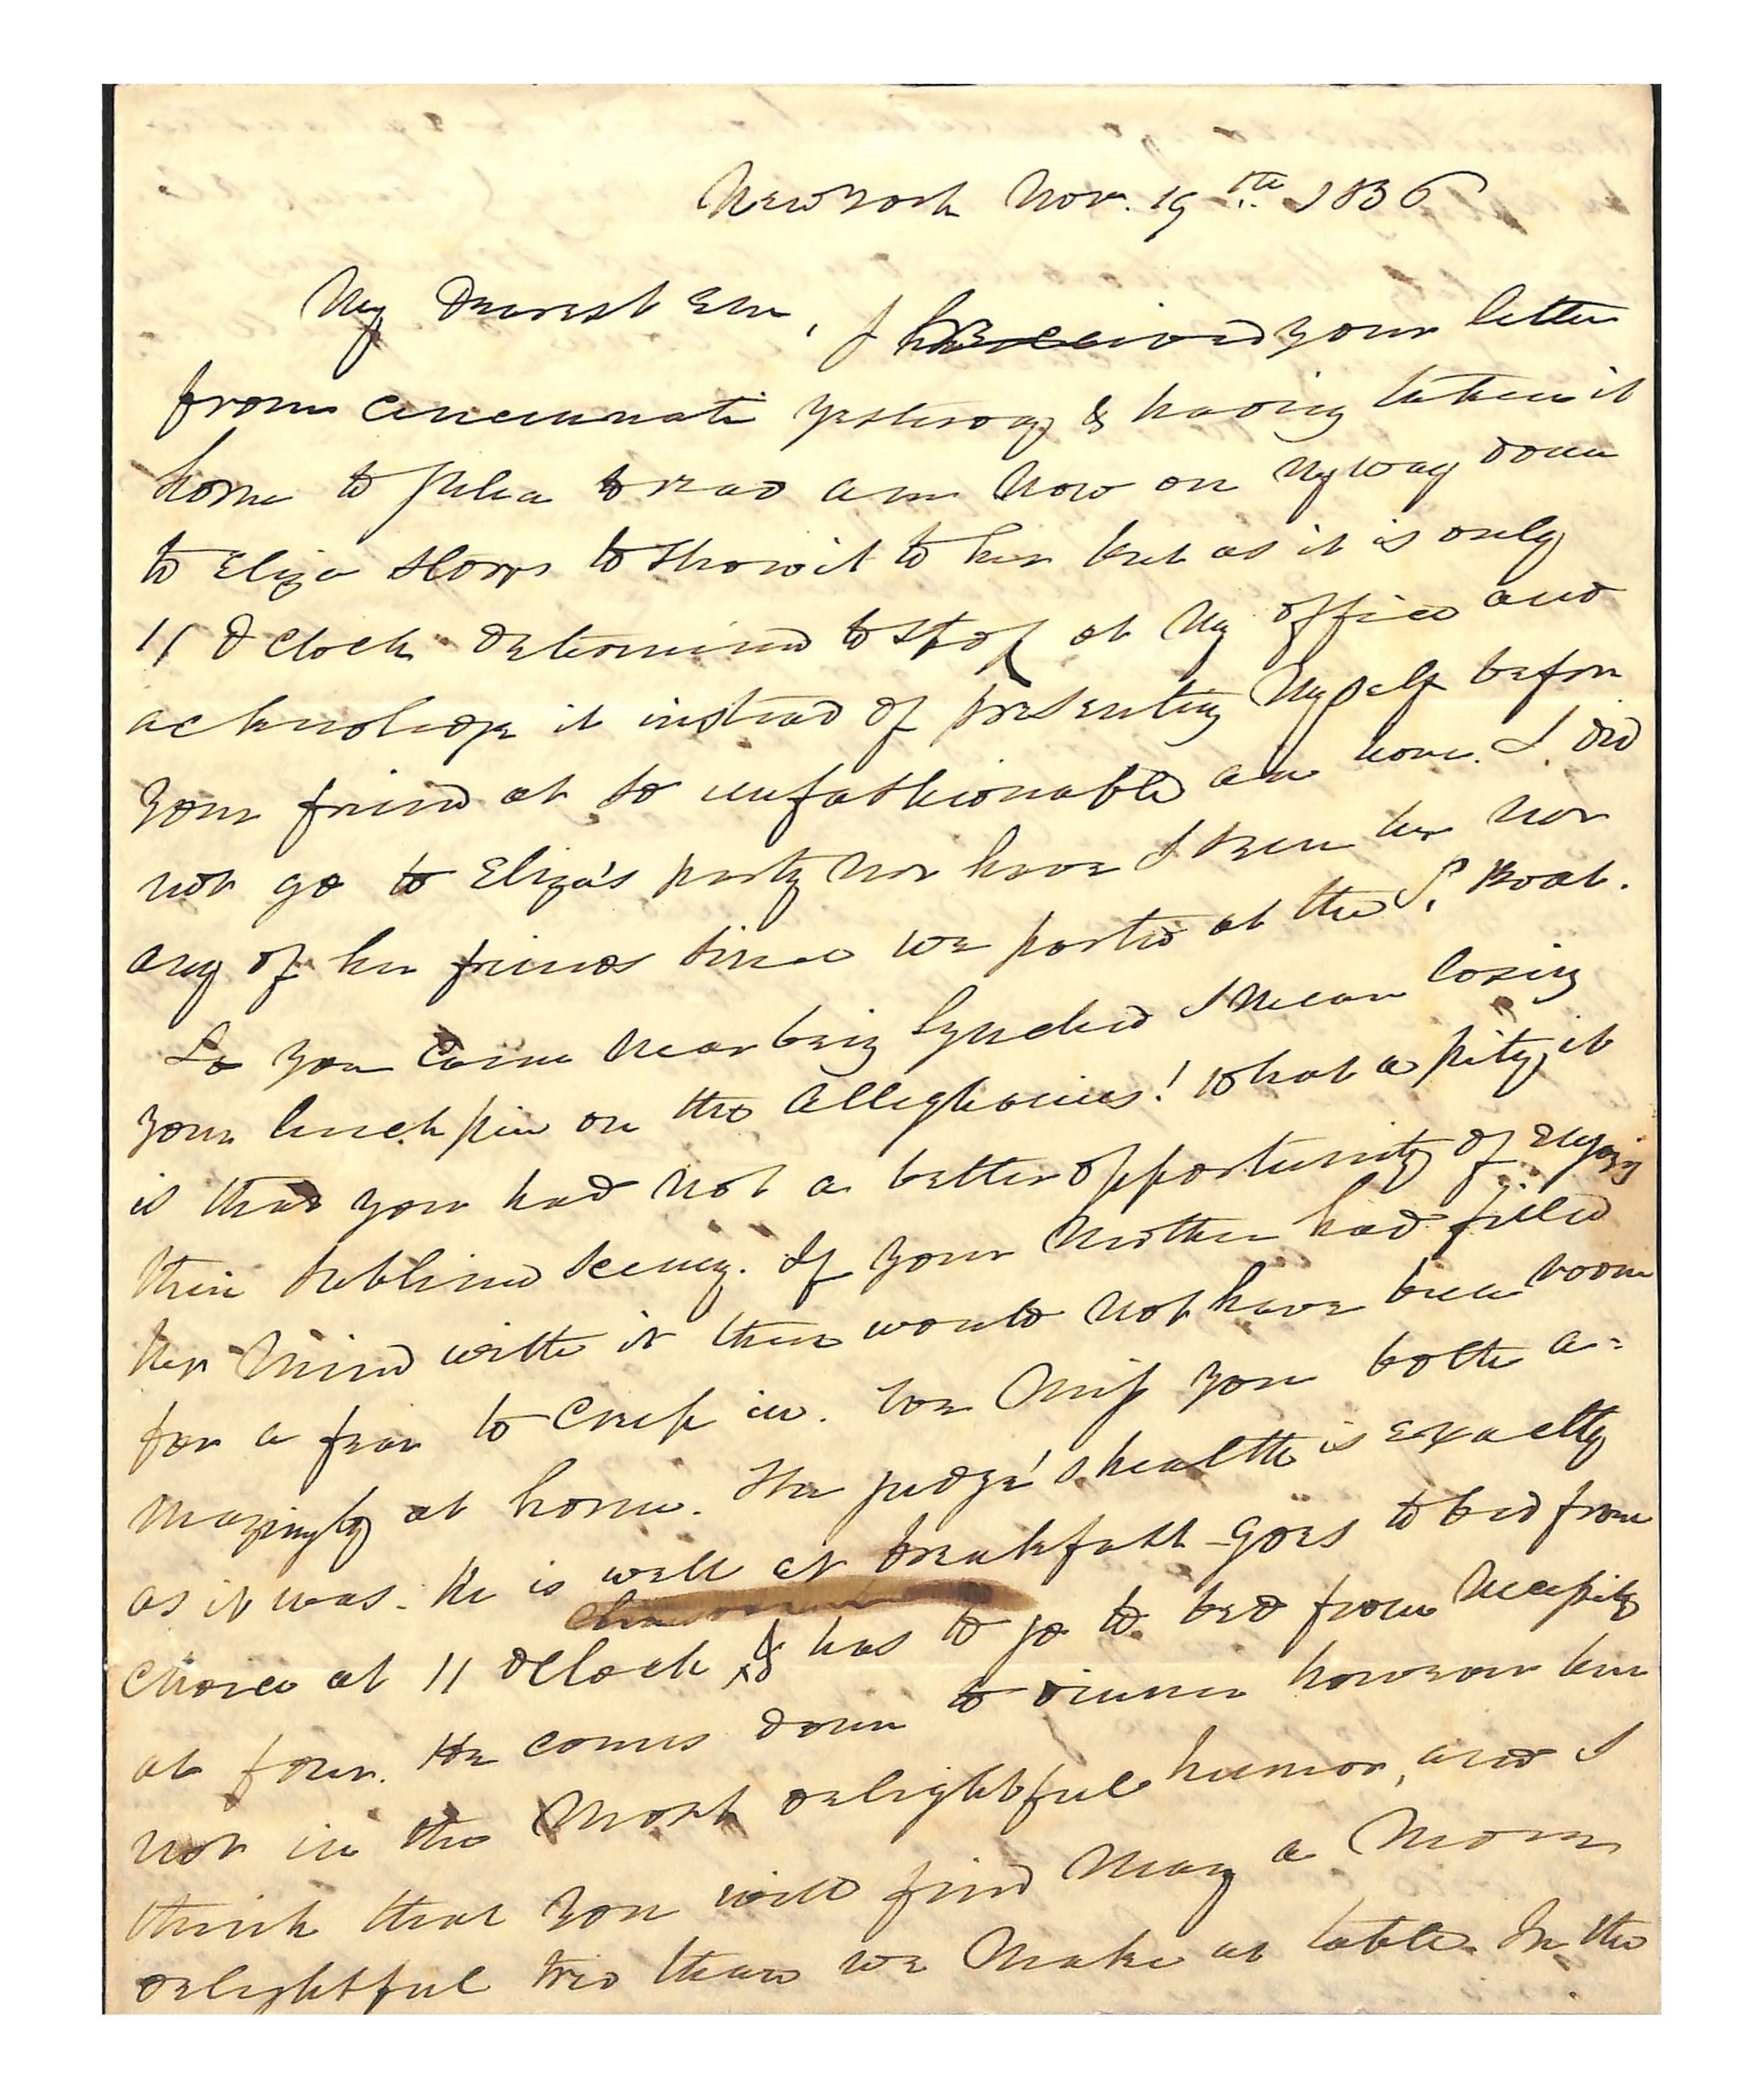 New York Nov. 19th 1836
My Dearest Em, I received your letter
from Cincinnati yesterday & having taken it
home to Julia to read am now on my way down
to Eliza Storrs to show it to her but as it is only
11 O Clock determined to stop at my office and
acknowledge it instead of presenting myself before
your friend at so unfashionable an hour. I did
not go to Eliza's party nor have I seen her nor
any of her friends since we parted at the S. Boat.
So you came near being Lynched I mean losing
your linch pin on the Alleghanies! What a pity it
is that you had not a better opportunity of enjoying
their sublime scenery. If your Mother had filled
her mind with it there would not have been room
for a fear to creep in. We miss you both a=
mazingly at home. The judge's health is exactly
as it was. He is well at breakfast - goes to bed from
choice at 11 O Clock & has to go to bed from necessity
at four. He comes down to dinner however but
not in the most delightful humor, and I
think that you will find many a more
delightful trio than we make at table. In the